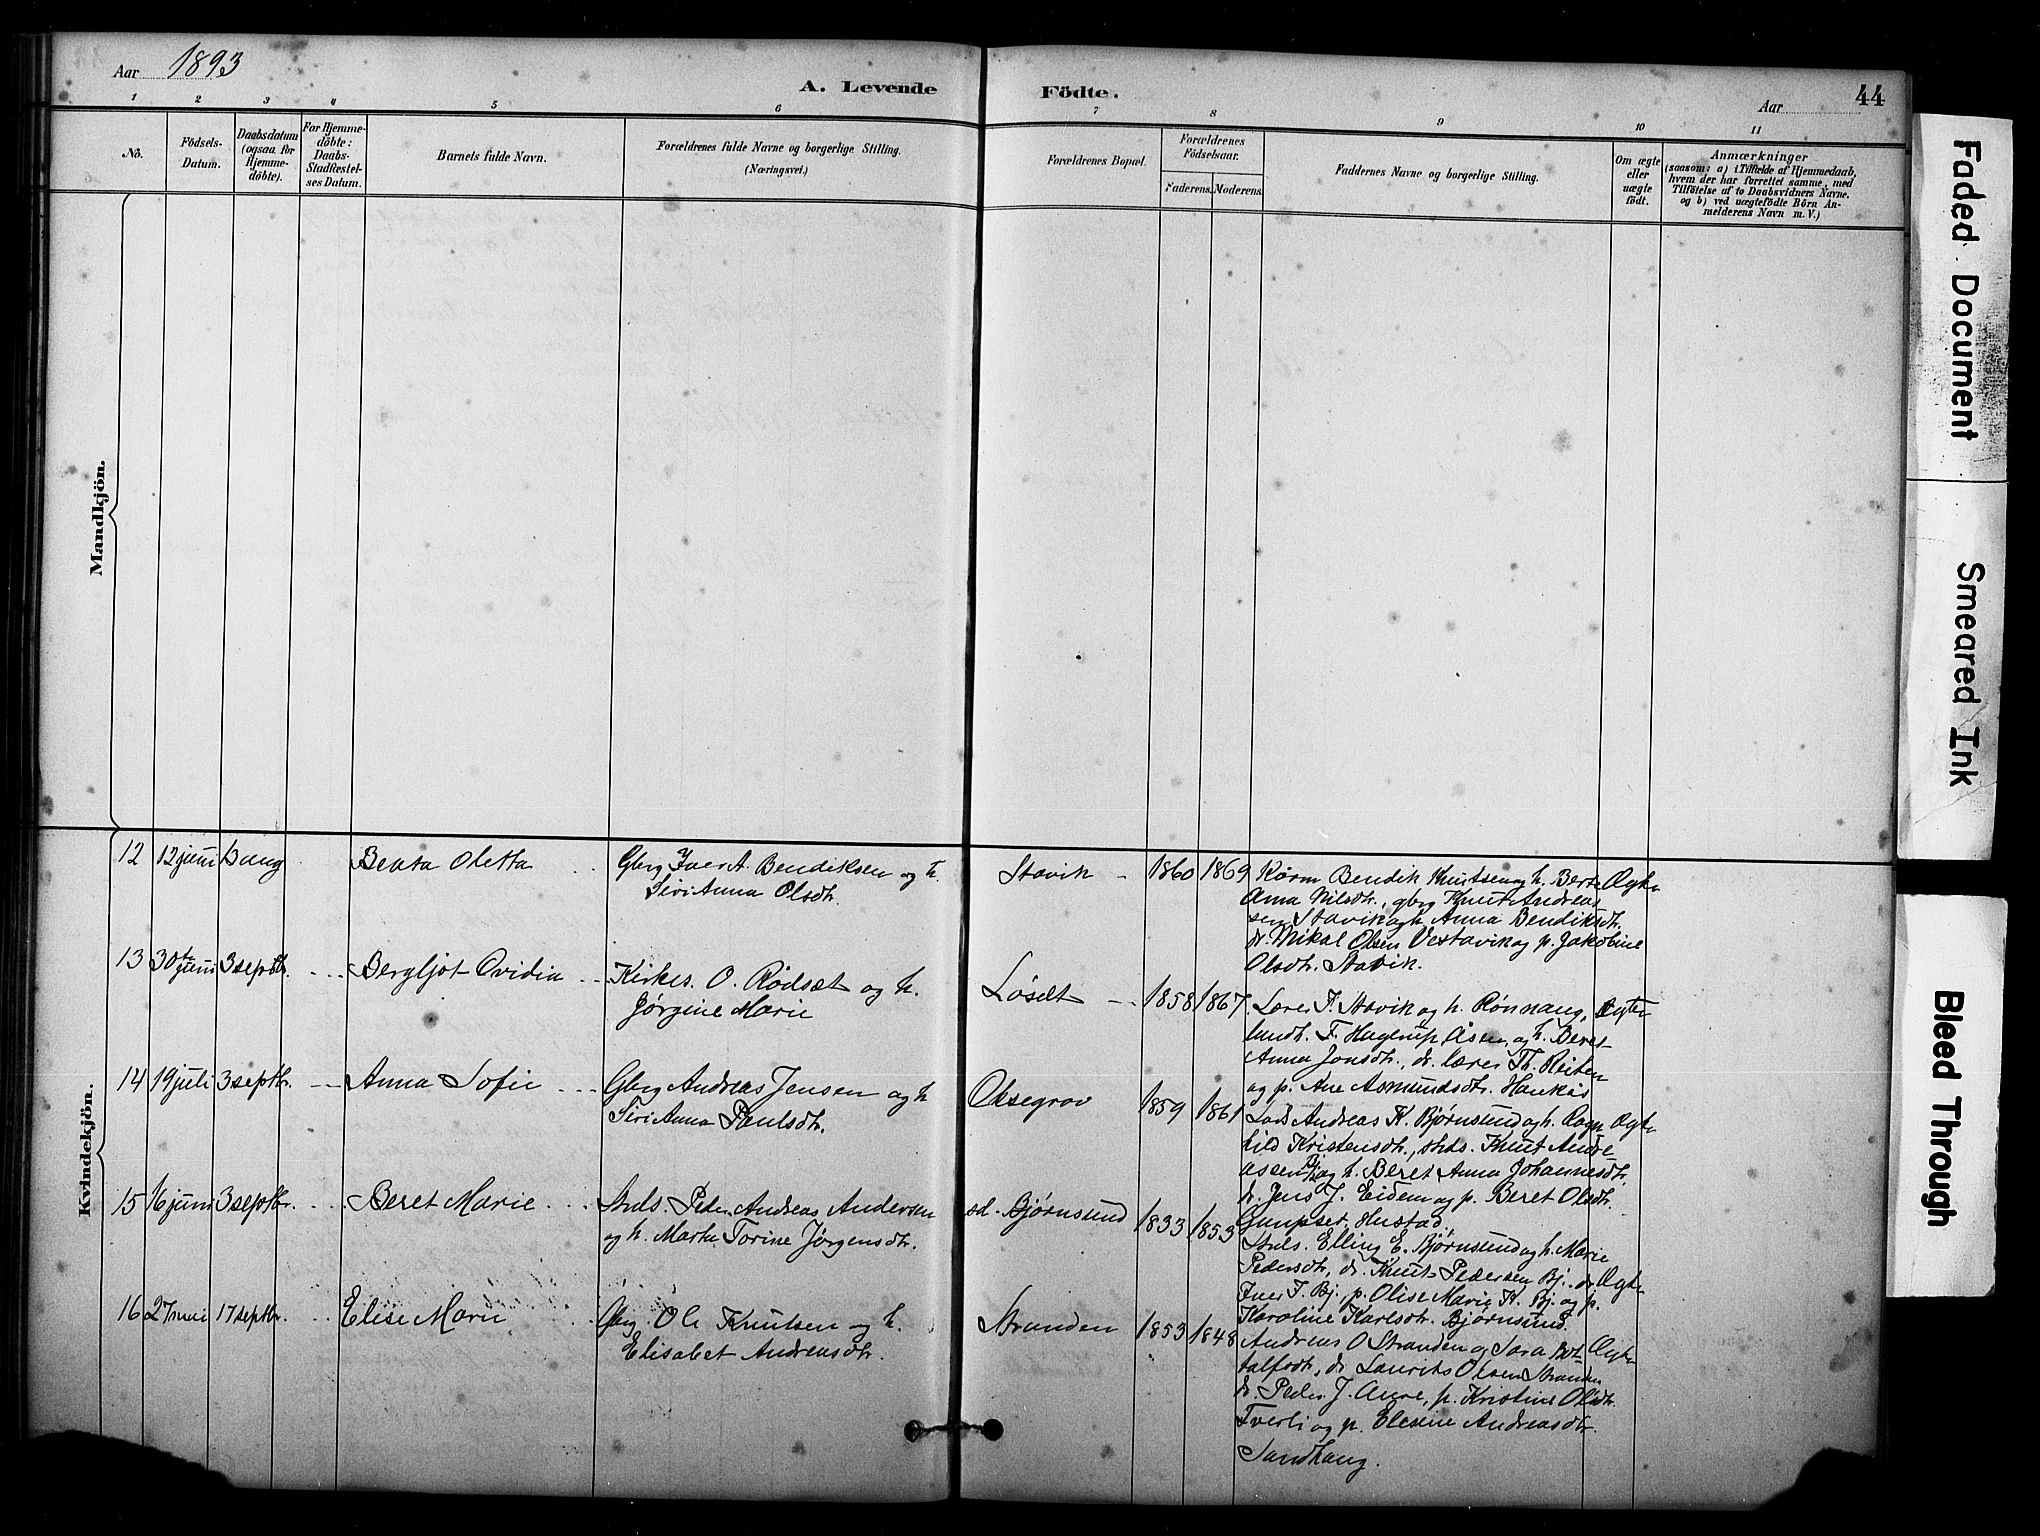 Aar 1893
A. Levende Födte.
Aar 44
1 2 3 4 5 6 7 8 9 10 11
No.
Födsels-
Datum.
Daabsdatum
(ogsaa for
Hjemme-
döbte).
For Hjemme-
döbte:
Daabs-
Stadfæstel-
ses Datum.
Barnets fulde Navn.
Forældrenes fulde Navne og borgerlige Stilling.
(Næringsvei.)
Forældrenes Bopæl.
Forældrenes
Födselsaar.
Faderens. Moderens.
Faddernes Navne og borgerlige Stilling.
Om ægte
eller
uægte
födt.
Anmærkninger
(saasom: a) i Tilfælde af Hjemmedaab,
hvem der har forrettet samme, med
Tilföielse af to Daabsvidners Navne.
og b) ved uægtefödte Börn An-
melderens Navn m. V.)
Mandkjön.
Kvindekjön.
12 12 juni 13 aug Beata Oletta Gbrg Iver A. Bendiksen og h.
Siri Anna Olsdtr.
Stavik 1860 1869
Kårm Bendik Knutsen og h. Berte Ægte
Anna Nilsdtr., gbrg Knut Andreas
sen Stavik og h. Anna Bendiksdtr.
dr. Mikal Olsen Vestavik og p. Jakobine
Olsdtr. Stavik.
13 30te juni 3 septbr. Bergljot Ovidia Kirkes. O. Rödsæt og h.
Jørgine Marie
Løset 1858 1867
Lærer F. Stavik og h. Rønnaug, Ægte
landh. F. Hagerup Åsen, og h. Beret
Anna Jonsdtr., dr. lærer Th. Reiten
og p. Ane Asmundsdtr. Haukås
14 19 juli 3 septbr. Anna Sofie Gbrg Andreas Jensen og h
Siri Anna Paulsdtr.
Oksegrov 1859 1861
Lods Andreas K. Bjørnsund og h. Ragn Ægte
hild Kristensdtr., strds. Knut Andre
assen Bj. og h. Beret Anna Johannesdtr.
dr. Jens J. Eidem og p. Beret Olsdtr.
Gunpset, Hustad.
15 16 juni 3 septbr. Beret Marie Strds. Peder Andreas Andersen
og h. Marta Torine Jørgensdtr.
sd. Bjørnsund 1833 1853
Strds. Elling E. Bjørnsund og h. Marie
Pedersdtr, dr. Knut Pedersen Bj. dr Ægte
Iver I. Bj., p. Olise Marie K. Bj. og p.
Karoline Karlsdtr. Bjørnsund.
16 27 mai 17 septbr. Elise Marie Gbrg. Ole Knutsen og h.
Elisabet Andreasdtr.
Stranden 1853 1848
Andreas O Stranden og Sara Bot- Ægte
talfsdtr, dr Laurits Olsen Stranden
dr. Peder J. Aure, p. Kristine Olsdtr.
Tverli og p. Elesine Andreasdtr
Sandhaug.
Faded Document
Smeared Ink
Bleed Through